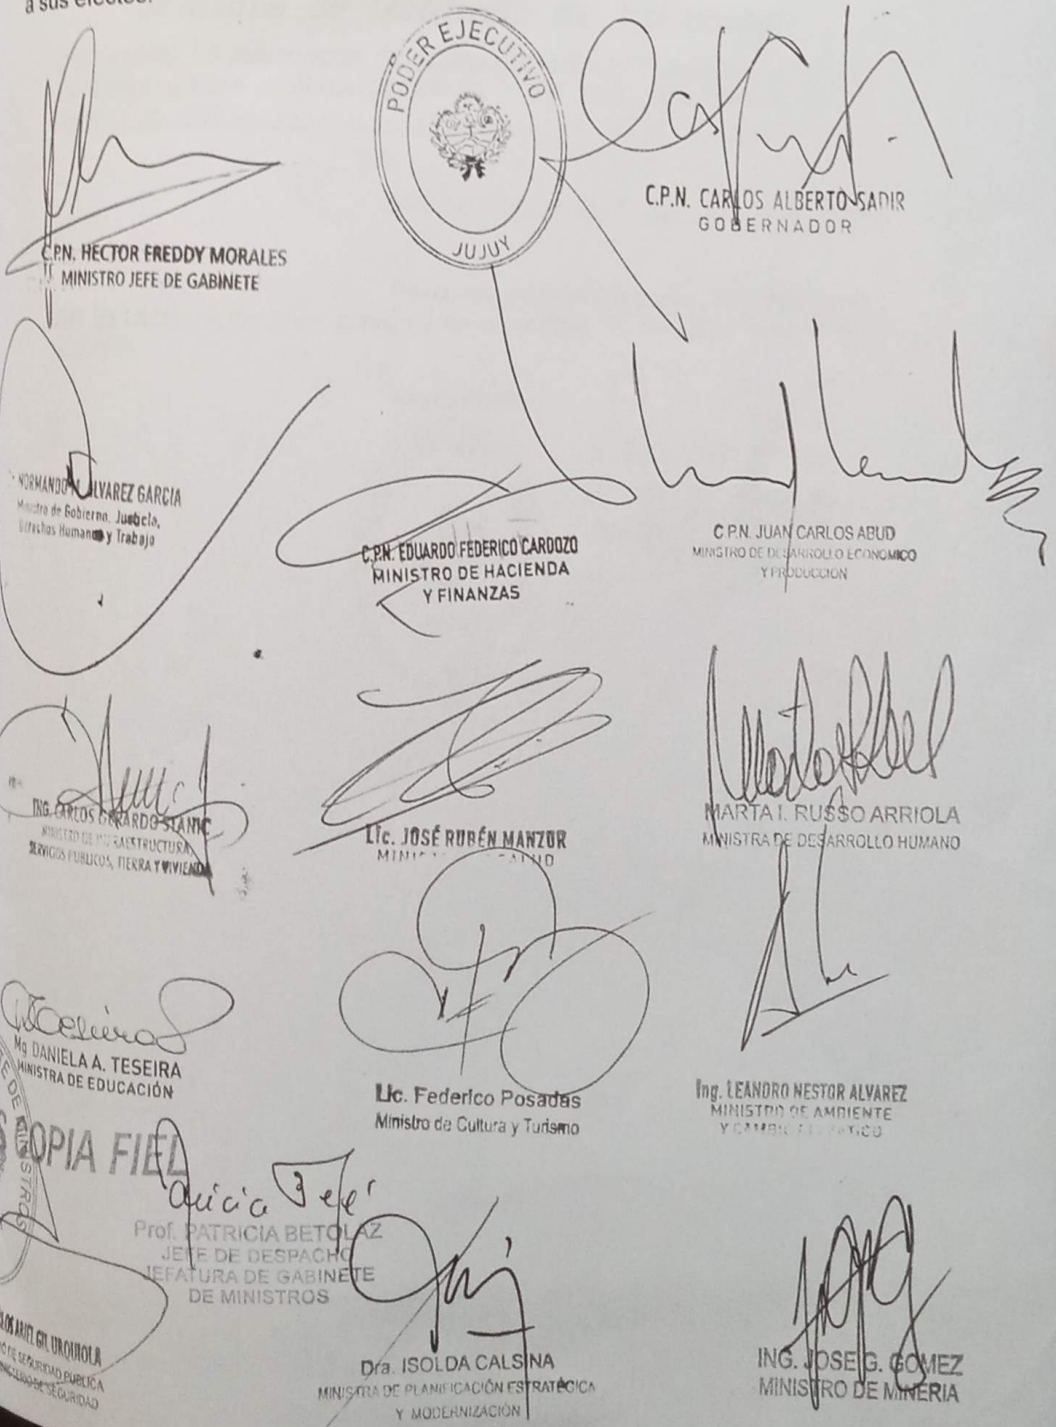 a sus efectos.
PODER EJECUTIVO
JUJUY
C.P.N. CARLOS ALBERTO SADIR
GOBERNADOR
C.P.N. HECTOR FREDDY MORALES
MINISTRO JEFE DE GABINETE
NORMANDO ALVAREZ GARCIA
Ministro de Gobierno, Justicia,
Derechos Humanos y Trabajo
C.P.N. EDUARDO FEDERICO CARDOZO
MINISTRO DE HACIENDA
Y FINANZAS
C.P.N. JUAN CARLOS ABUD
MINISTRO DE DESARROLLO ECONOMICO
Y PRODUCCION
ING. CARLOS GERARDO STANIC
MINISTRO DE INFRAESTRUCTURA,
SERVICIOS PUBLICOS, TIERRA Y VIVIENDA
Lic. JOSÉ RUBÉN MANZUR
MINIS SALUD
MARTA I. RUSSO ARRIOLA
MINISTRA DE DESARROLLO HUMANO
Mg DANIELA A. TESEIRA
MINISTRA DE EDUCACIÓN
Lic. Federico Posadas
Ministro de Cultura y Turismo
Ing. LEANDRO NESTOR ALVAREZ
MINISTRO DE AMBIENTE
Y CAMBIO CLIMATICO
COPIA FIEL
Patricia Bet
Prof. PATRICIA BETOLAZ
JEFE DE DESPACHO
JEFATURA DE GABINETE
DE MINISTROS
ARIEL GIL URQUIOLA
DE SEGURIDAD PUBLICA
DE SEGURIDAD
Dra. ISOLDA CALSINA
MINISTRA DE PLANIFICACIÓN ESTRATÉGICA
Y MODERNIZACIÓN
ING. JOSE G. GOMEZ
MINISTRO DE MINERIA